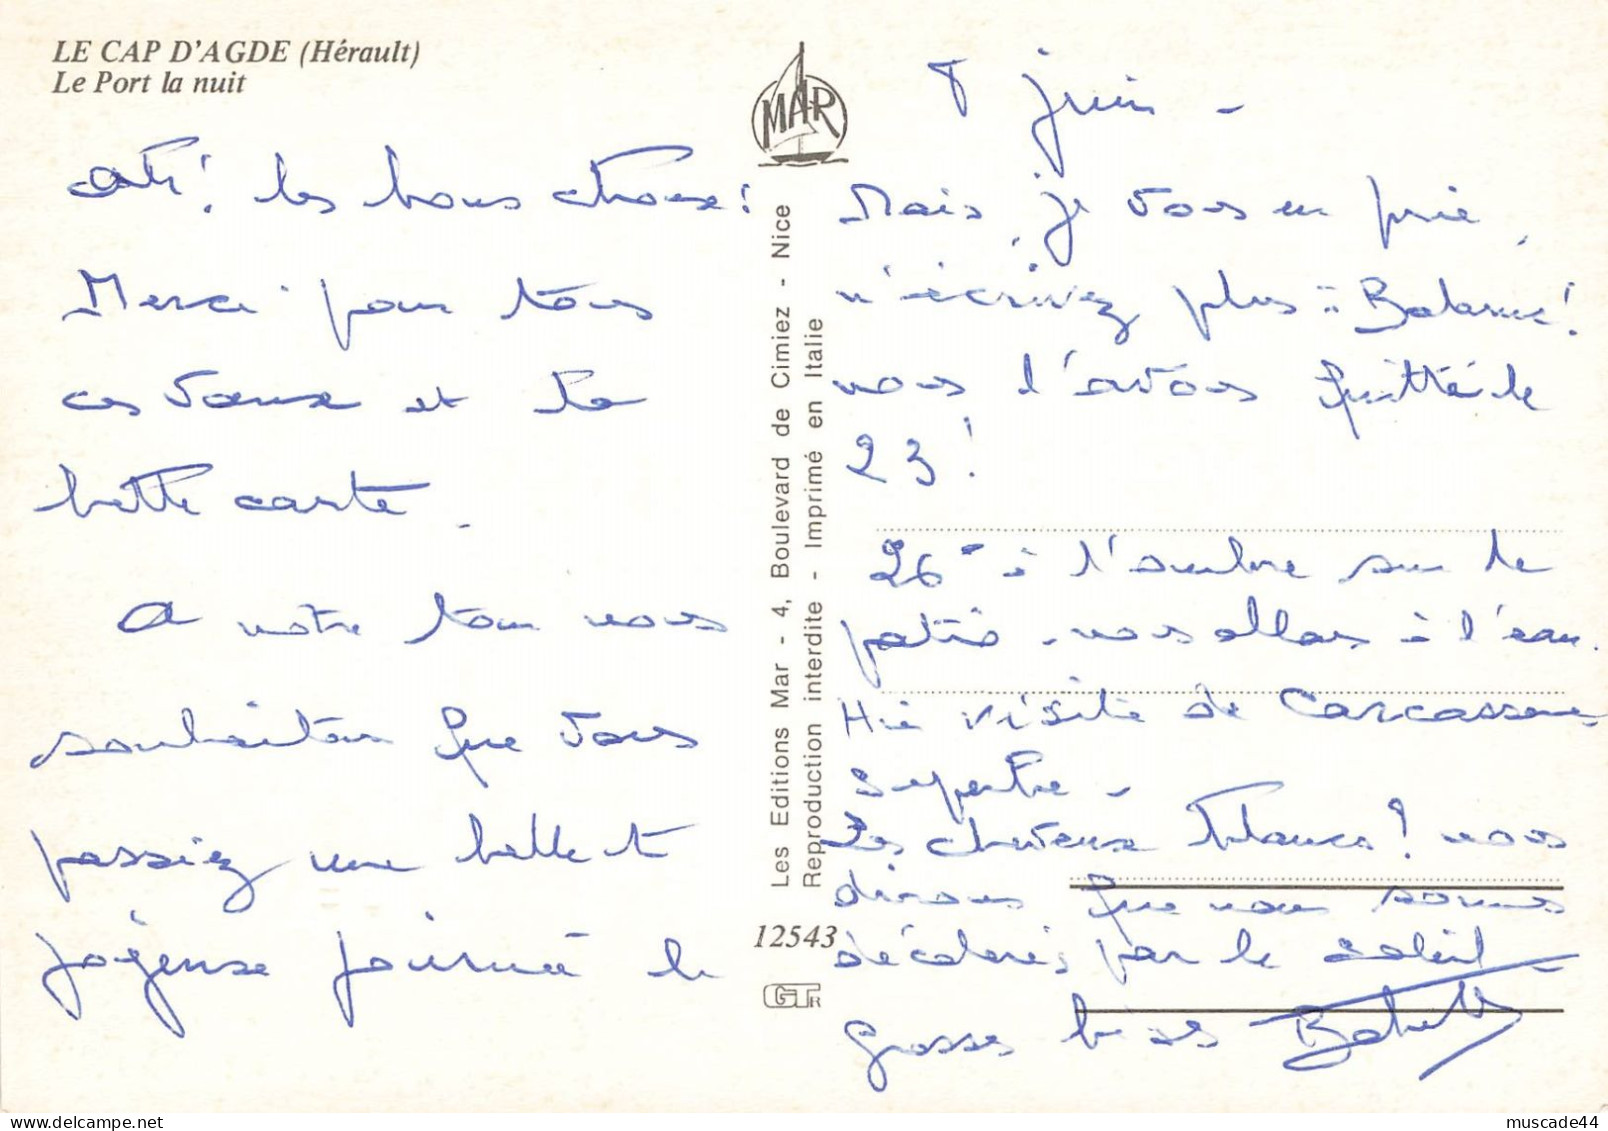 LE CAP D'AGDE (Hérault)
Le Port la nuit
Oh! les bons choux!
Merci pour tous
ces voeux et la
belle carte.
A notre tour nous
souhaitons que vous
passiez une belle et
joyeuse journée le
8 juin -
Mais, je vous en prie,
n'écrivez plus à Balaruc!
nous l'avons quitté le
23!
26° à l'ombre sur le
patio - nous allons à l'eau.
Hier visite de Carcassonne
superbe -
Les cheveux blancs? nous
dirons que nous sommes
décolorés par le soleil -
grosses bises
MAR
Les Editions Mar - 4, Boulevard de Cimiez - Nice
Reproduction interdite - Imprimé en Italie
12543
GTR
muscade44